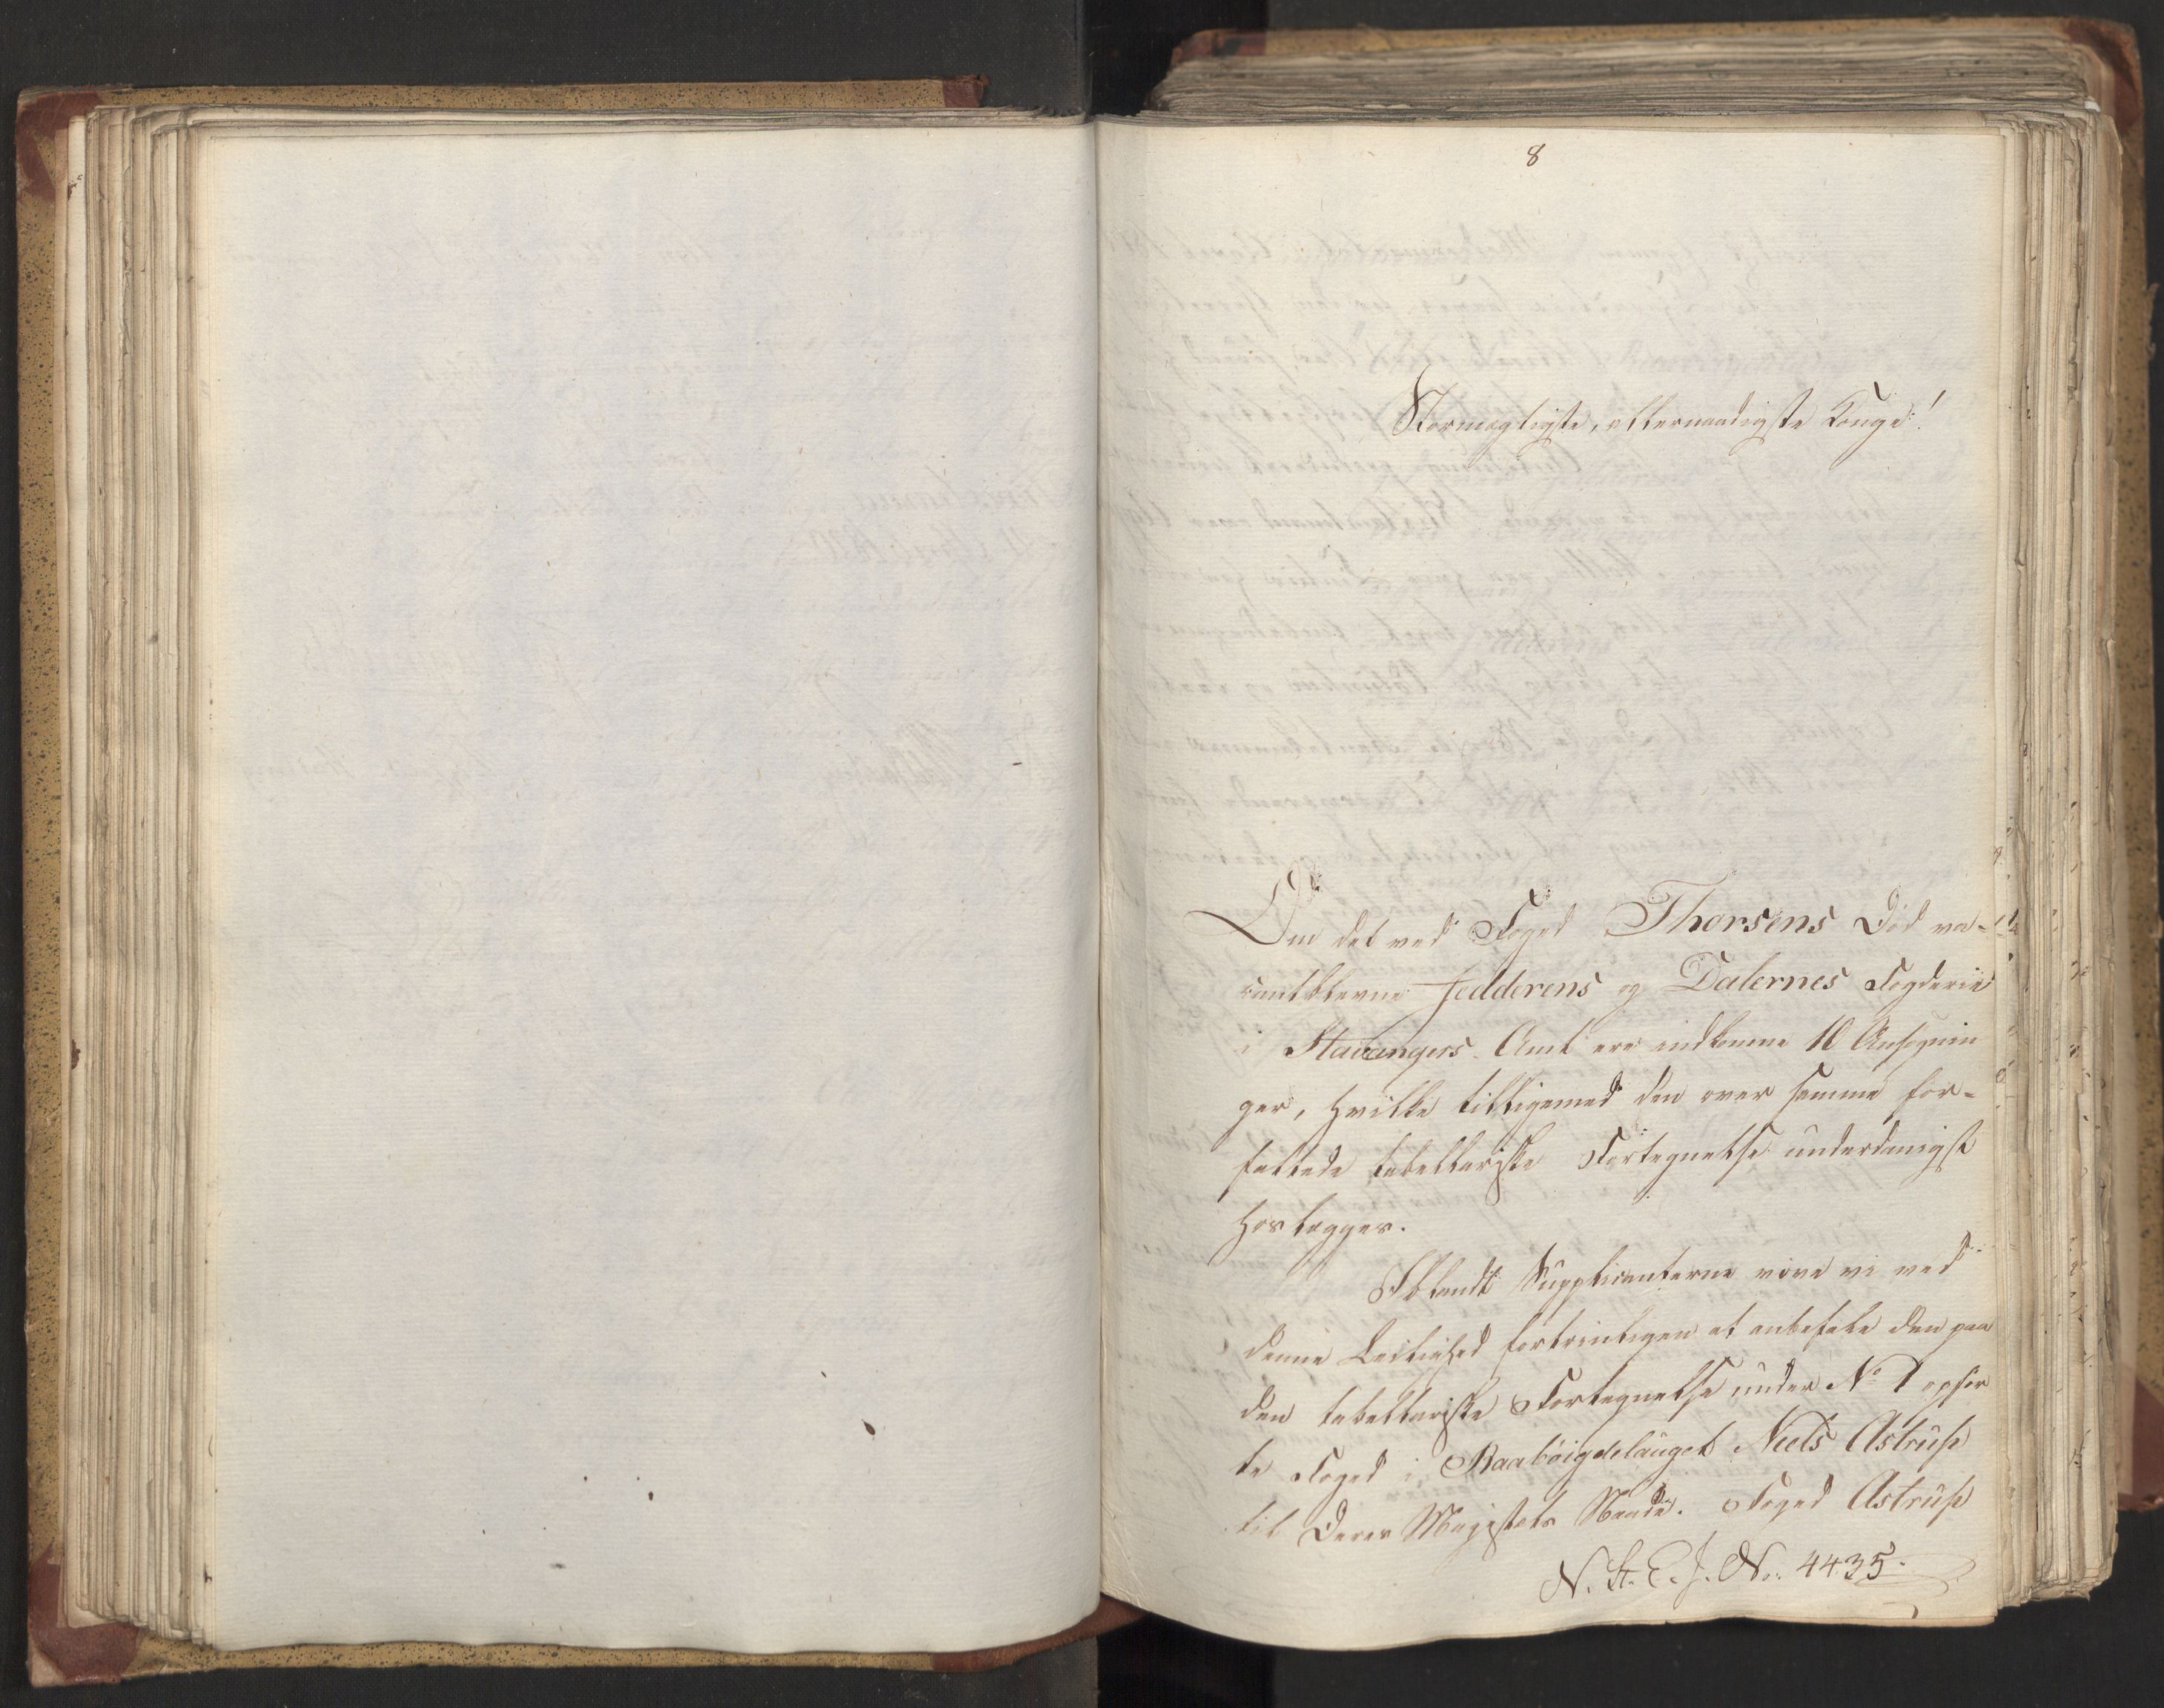 8
Stormægtigste, allernaadigste Konge!
Om det ved Foged Thorsens Död va-
cantblevne Jedderens og Dalernes Fogderie
i Stavangers Amt ere indkomne 10 Ansøgnin
ger, hvilke tilligemed den over samme for-
fattede tabellariske Fortegnelse underdanigst
hoslægges.
Iblandt Supplicanterne vove vi ved
denne Leilighed fortrinligen at anbefale den paa
den tabellariske Fortegnelse under No 1 opför
te Foged i Raaböigdelauget Niels Astrup
til Deres Majestæts Naade. Foged Astrup
N. St. E. J. No. 4435.